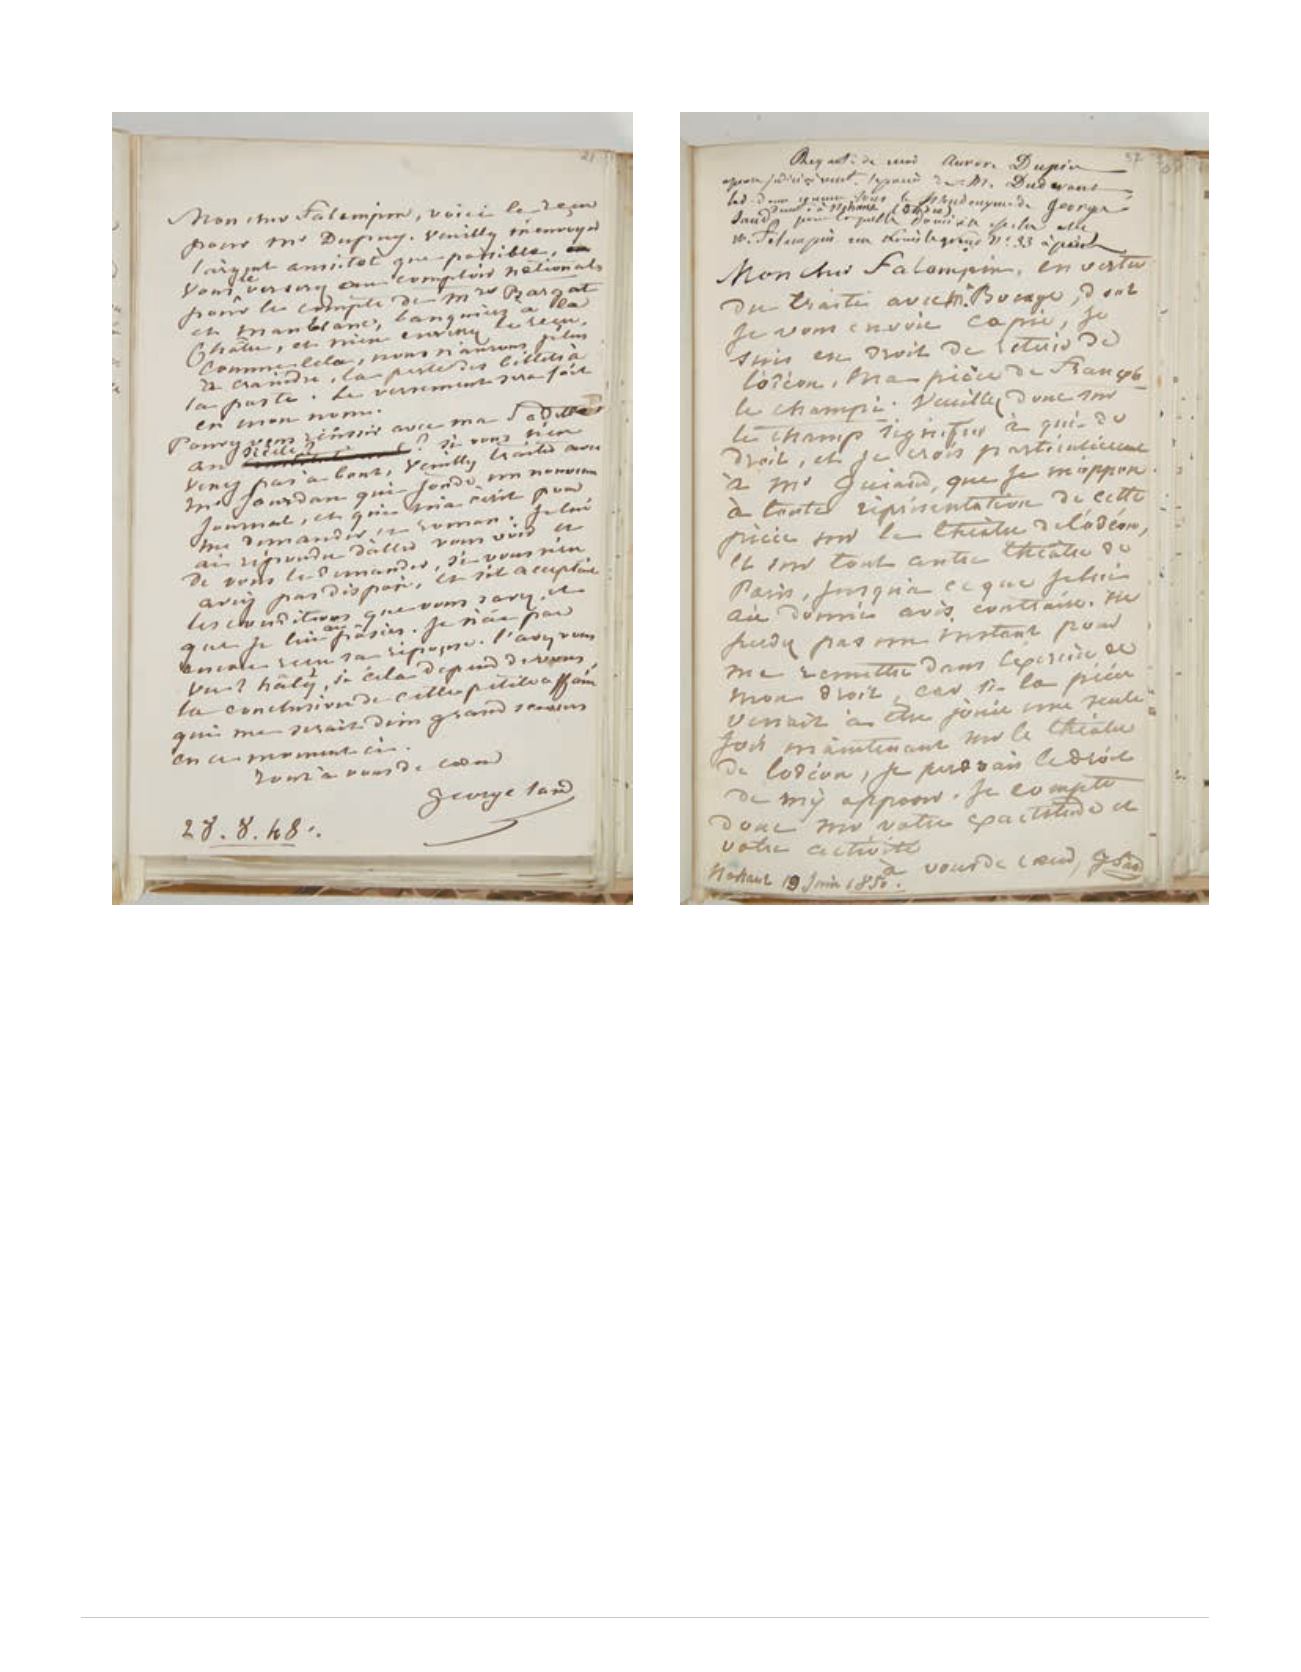 21
Mon cher Falampin, voici le reçu
pour Mr Dupuy. Veuillez m'envoyer
l'argent aussitôt que possible, ou
vous le verserez au comptoir national
pour le compte de Mrs
et Manblanc, banquiers à la
Châtre, et m'en envoyer le reçu.
Comme cela, nous n'aurons plus
à craindre, la perte des billets à
la poste. Le versement sera fait
en mon nom.
Pouvez vous réussir avec ma Fadette
au siècle? ? si vous n'en
venez pas à bout, veuillez traiter avec
Mr Jourdan qui fonde un nouveau
journal, et qui m'a écrit pour
me demander ce roman. Je lui
ai répondu d'aller vous voir et
de vous le demander, si vous n'en
avez pas disposé, et s'il acceptait
les conditions que vous savez, et
que je lui ai fixées. Je n'ai pas
encore reçu sa réponse. l'avez vous
vu? hâtez, si cela dépend de vous,
la conclusion de cette petite affaire
qui me serait d'un grand secours
en ce moment ci.
Tout à vous de cœur
George Sand
28.8.48.
37
Requête de moi Aurore Dupin
épouse judiciairement séparée de M. Dudevant
connue sous le pseudonyme de George
Sand à Nohant (Indre)
pour laquelle domicile
M. Falampin rue Louis le grand N° 33 à Paris
Mon cher Falampin, en vertu
du traité avec Mr Bocage, dont
je vous envoie copie, je
suis en droit de retirer de
l'odéon, ma pièce de François
le champi. Veuillez donc sur
le champ signifier à qui de
droit, et je crois particulièrement
à Mr, que je m'oppose
à toute représentation de cette
pièce sur le théâtre de l'odéon,
et sur tout autre théâtre de
Paris, jusqu'à ce que je lui
aie donné avis contraire. Ne
perdez pas un instant pour
me remettre dans l'exercice de
mon droit, car si la pièce
venait à être jouée une seule
fois maintenant sur le théâtre
de l'odéon, je perdrais le droit
de m'y opposer. Je compte
donc sur votre exactitude et
votre activité
à vous de cœur, G Sand
Nohant 19 Juin 1850.